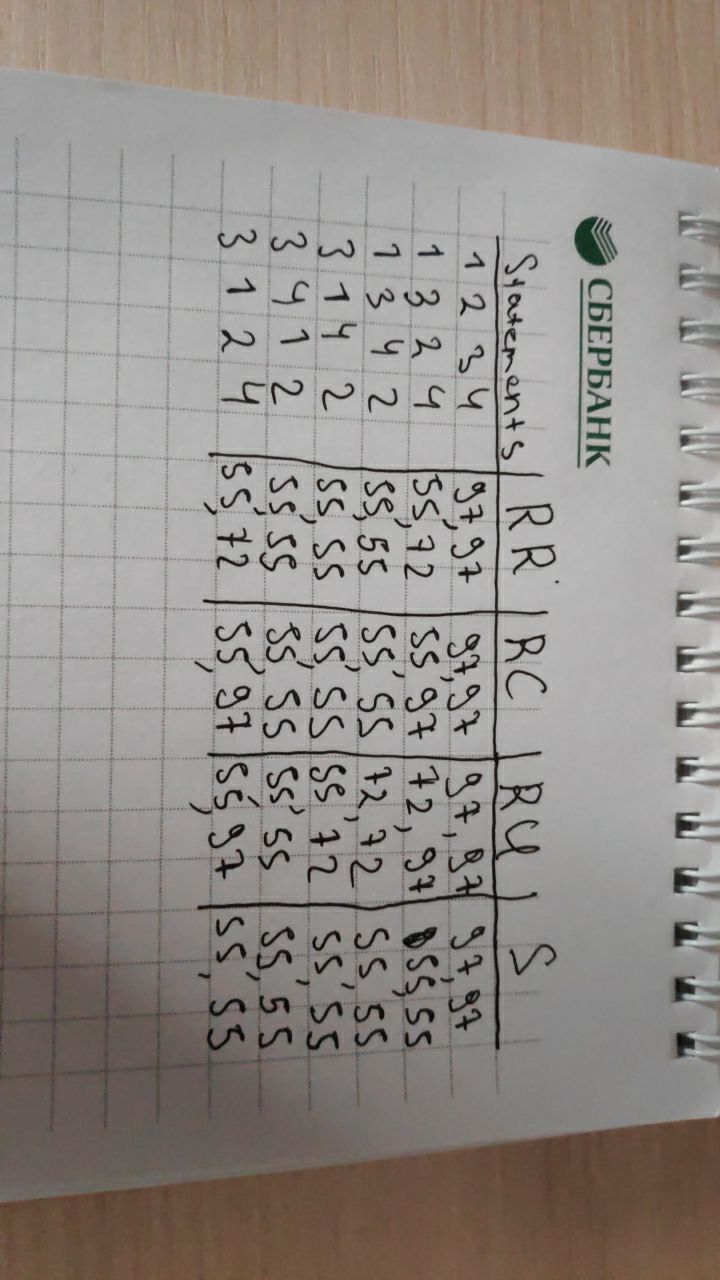 СБЕРБАНК
Statements RR RC RU S
1 2 3 4 97, 97 97, 97 97, 97 97, 97
1 3 2 4 55, 72 55, 97 72, 97 55, 55
1 3 4 2 55, 55 55, 55 72, 72 55, 55
3 1 4 2 55, 55 55, 55 55, 72 55, 55
3 4 1 2 55, 55 55, 55 55, 55 55, 55
3 1 2 4 55, 72 55, 97 55, 97 55, 55